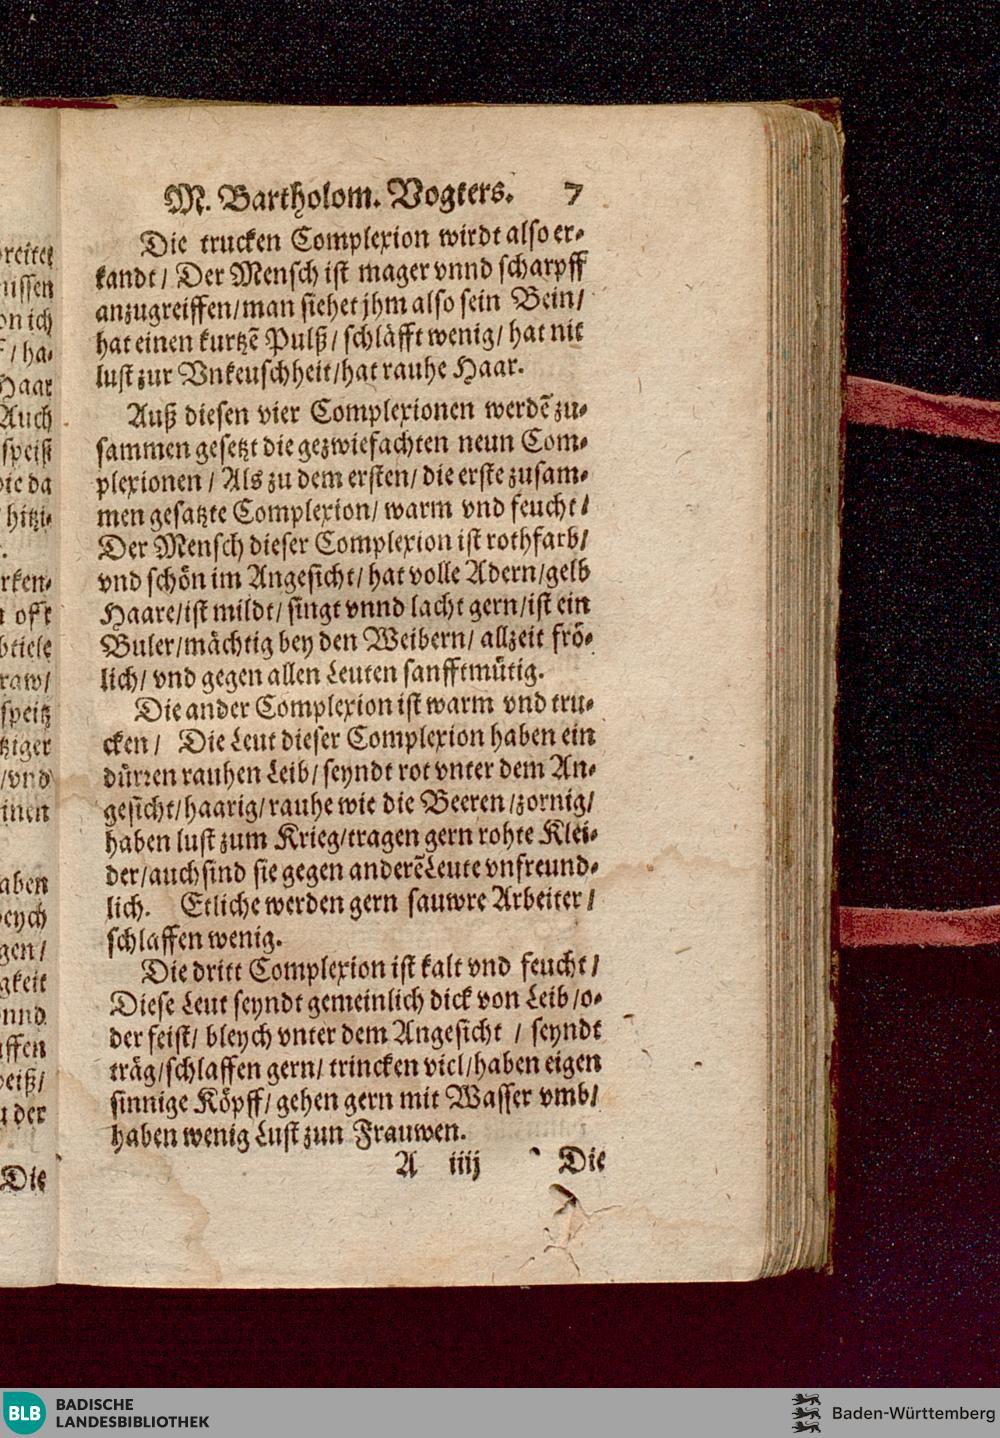 M. Bartholom. Vogters. 7
Die trucken Complexion wirdt also er-
kandt / Der Mensch ist mager vnnd scharpff
anzugreiffen / man siehet jhm also sein Bein /
hat einen kurtzẽ Pulß / schläfft wenig / hat nit
lust zur Vnkeuschheit / hat rauhe Haar.
Auß diesen vier Complexionen werdẽ zu-
sammen gesetzt die gezwiefachten neun Com-
plexionen / Als zu dem ersten / die erste zusam-
men gesatzte Complexion / warm vnd feucht /
Der Mensch dieser Complexion ist rothfarb /
vnd schön im Angesicht / hat volle Adern / gelb
Haare / ist mildt / singt vnnd lacht gern / ist ein
Buler / mächtig bey den Weibern / allzeit frö-
lich / vnd gegen allen Leuten sanfftmütig.
Die ander Complexion ist warm vnd tru-
cken / Die Leut dieser Complexion haben ein
dürren rauhen Leib / seyndt rot vnter dem An-
gesicht / haarig / rauhe wie die Beeren / zornig /
haben lust zum Krieg / tragen gern rohte Klei-
der / auch sind sie gegen anderẽ Leute vnfreund-
lich. Etliche werden gern sauwre Arbeiter /
schlaffen wenig.
Die dritt Complexion ist kalt vnd feucht /
Diese Leut seyndt gemeinlich dick von Leib / o-
der feist / bleych vnter dem Angesicht / seyndt
träg / schlaffen gern / trincken viel / haben eigen
sinnige Köpff / gehen gern mit Wasser vmb /
haben wenig Lust zun Frauwen.
A iiij Die
BLB BADISCHE
LANDESBIBLIOTHEK
Baden-Württemberg